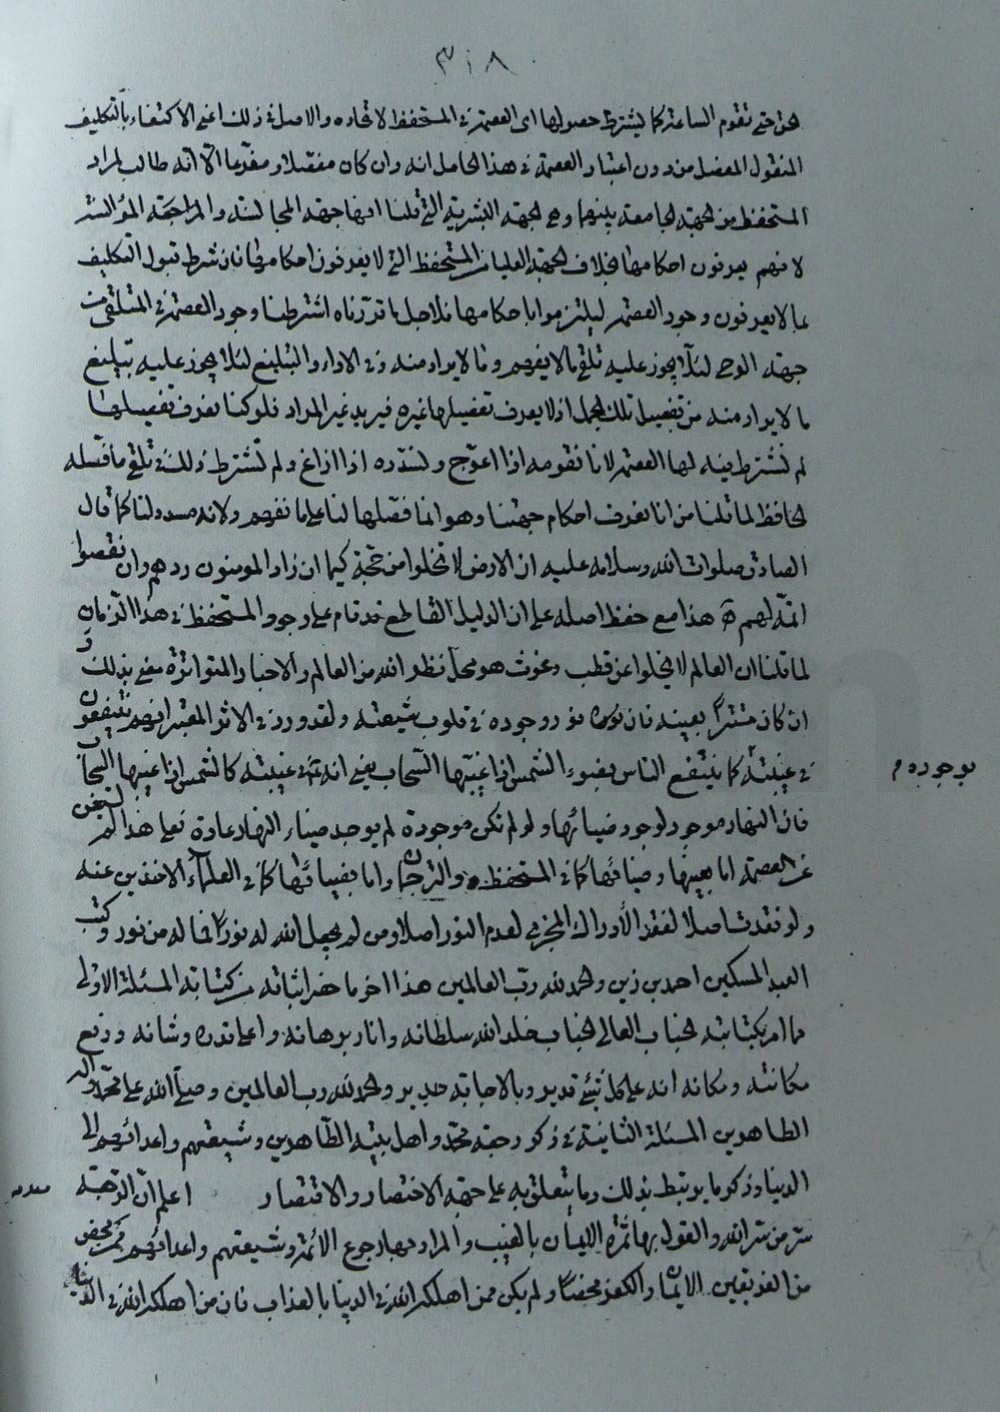 ٣٠٨
حتى تقوم الساعة كما يشترط حصولها اى العصمة فى المستحفظ لاتحاده والاصل فى ذلك اعنى الاكتفاء بالتكليف
المنقول المفصل من دون اعتبار العصمة فى هذا الحامل انه وان كان مفصلا ومفرعا الا انه طالب لمراد
المستحفظ من الجهة الجامعة بينهما وهى الجهة البشرية التى قلنا انها جهة المجالسة والمراجعة المؤانسة
لانهم يعرفون احكامها بخلاف الجهة العليا من المستحفظ التى لا يعرفون احكامها فان شرط قبول التكليف
بما لا يعرفون وجود العصمة ليلتزموا باحكامها فلاجل ما قررناه اشترطنا وجود العصمة فى المتلقى من
جهة الوحى لئلا يجوز عليه تلقى ما لا يفهم وما لا يراد منه وفى الاداء والتبليغ لئلا يجوز عليه تبليغ
ما لا يراد منه من تفصيل تلك الجمل اذ لا يعرف تفصيلها غيره فيريد غير المراد فلو كنا نعرف تفصيلها
لم نشترط فيه لها العصمة لانا نقومه اذا اعوج ونسدده اذا زاغ ولم نشترط ذلك فى تلقى ما فصله
الحافظ لما قلنا من انا نعرف احكام جهتنا وهو انما فصلها لنا على ما نفهم ولانه مسدد لنا كما قال
الصادق صلوات الله وسلامه عليه ان الارض لا تخلوا من حجة كيما ان زاد المومنون ردهم وان نقصوا
اتمه لهم هذا مع حفظ اصله على ان الدليل القاطع قد قام على وجود المستحفظ فى هذا الزمان
لما قلنا ان العالم لا يخلوا عن قطب وغوث هو محل نظر الله من العالم والاخبار المتواترة معنى بذلك و
ان كان مستترا بعينه فان نوره نور وجوده فى قلوب شيعته ولقد ورد فى الاثر المعتبر انهم ينتفعون
بوجوده
فى غيبته كما ينتفع الناس بضوء الشمس اذا غيبها السحاب يعنى انه فى غيبته كالشمس اذا غيبها السحاب
فان النهار موجود لوجود ضيائها ولو لم تكن موجودة لم يوجد ضياء النهار عادة فعلى هذا لم نستغن
عن العصمة اما بعينها وضيائها كما فى المستحفظ والترجمان واما بضيائها كما فى العلماء الاخذين عنه
ولو فقدت اصلا لفقد الأدراك المجزى لعدم النور اصلا ومن لم يجعل الله له نورا فما له من نور وكتب
العبد المسكين احمد بن زين والحمد لله رب العالمين هذا اخر ما حضر اثباته من كتابة المسئلة الاولى
مما امر بكتابته الجناب العالى الجناب خلد الله سلطانه وانار برهانه واعلى قدره وشانه ورفع
مكانته ومكانه انه على كل شئ قدير وبالاجابة جدير والحمد لله رب العالمين وصلى الله على محمد واله
الطاهرين المسئلة الثانية فى ذكر رجعة محمد واهل بيته الطاهرين وشيعتهم واعدائهم الى
الدنيا وذكر ما يرتبط بذلك وما يتعلق به على جهة الاختصار والاقتصار اعلم ان الرجعة
سر من سر الله والقول بها ثمرة الايمان بالغيب والمراد بها رجوع الائمة وشيعتهم واعدائهم ممن محض
من الفريقين الايمان والكفر محضا ولم يكن ممن اهلكه الله فى الدنيا بالعذاب فان من اهلكه الله فى الدنيا